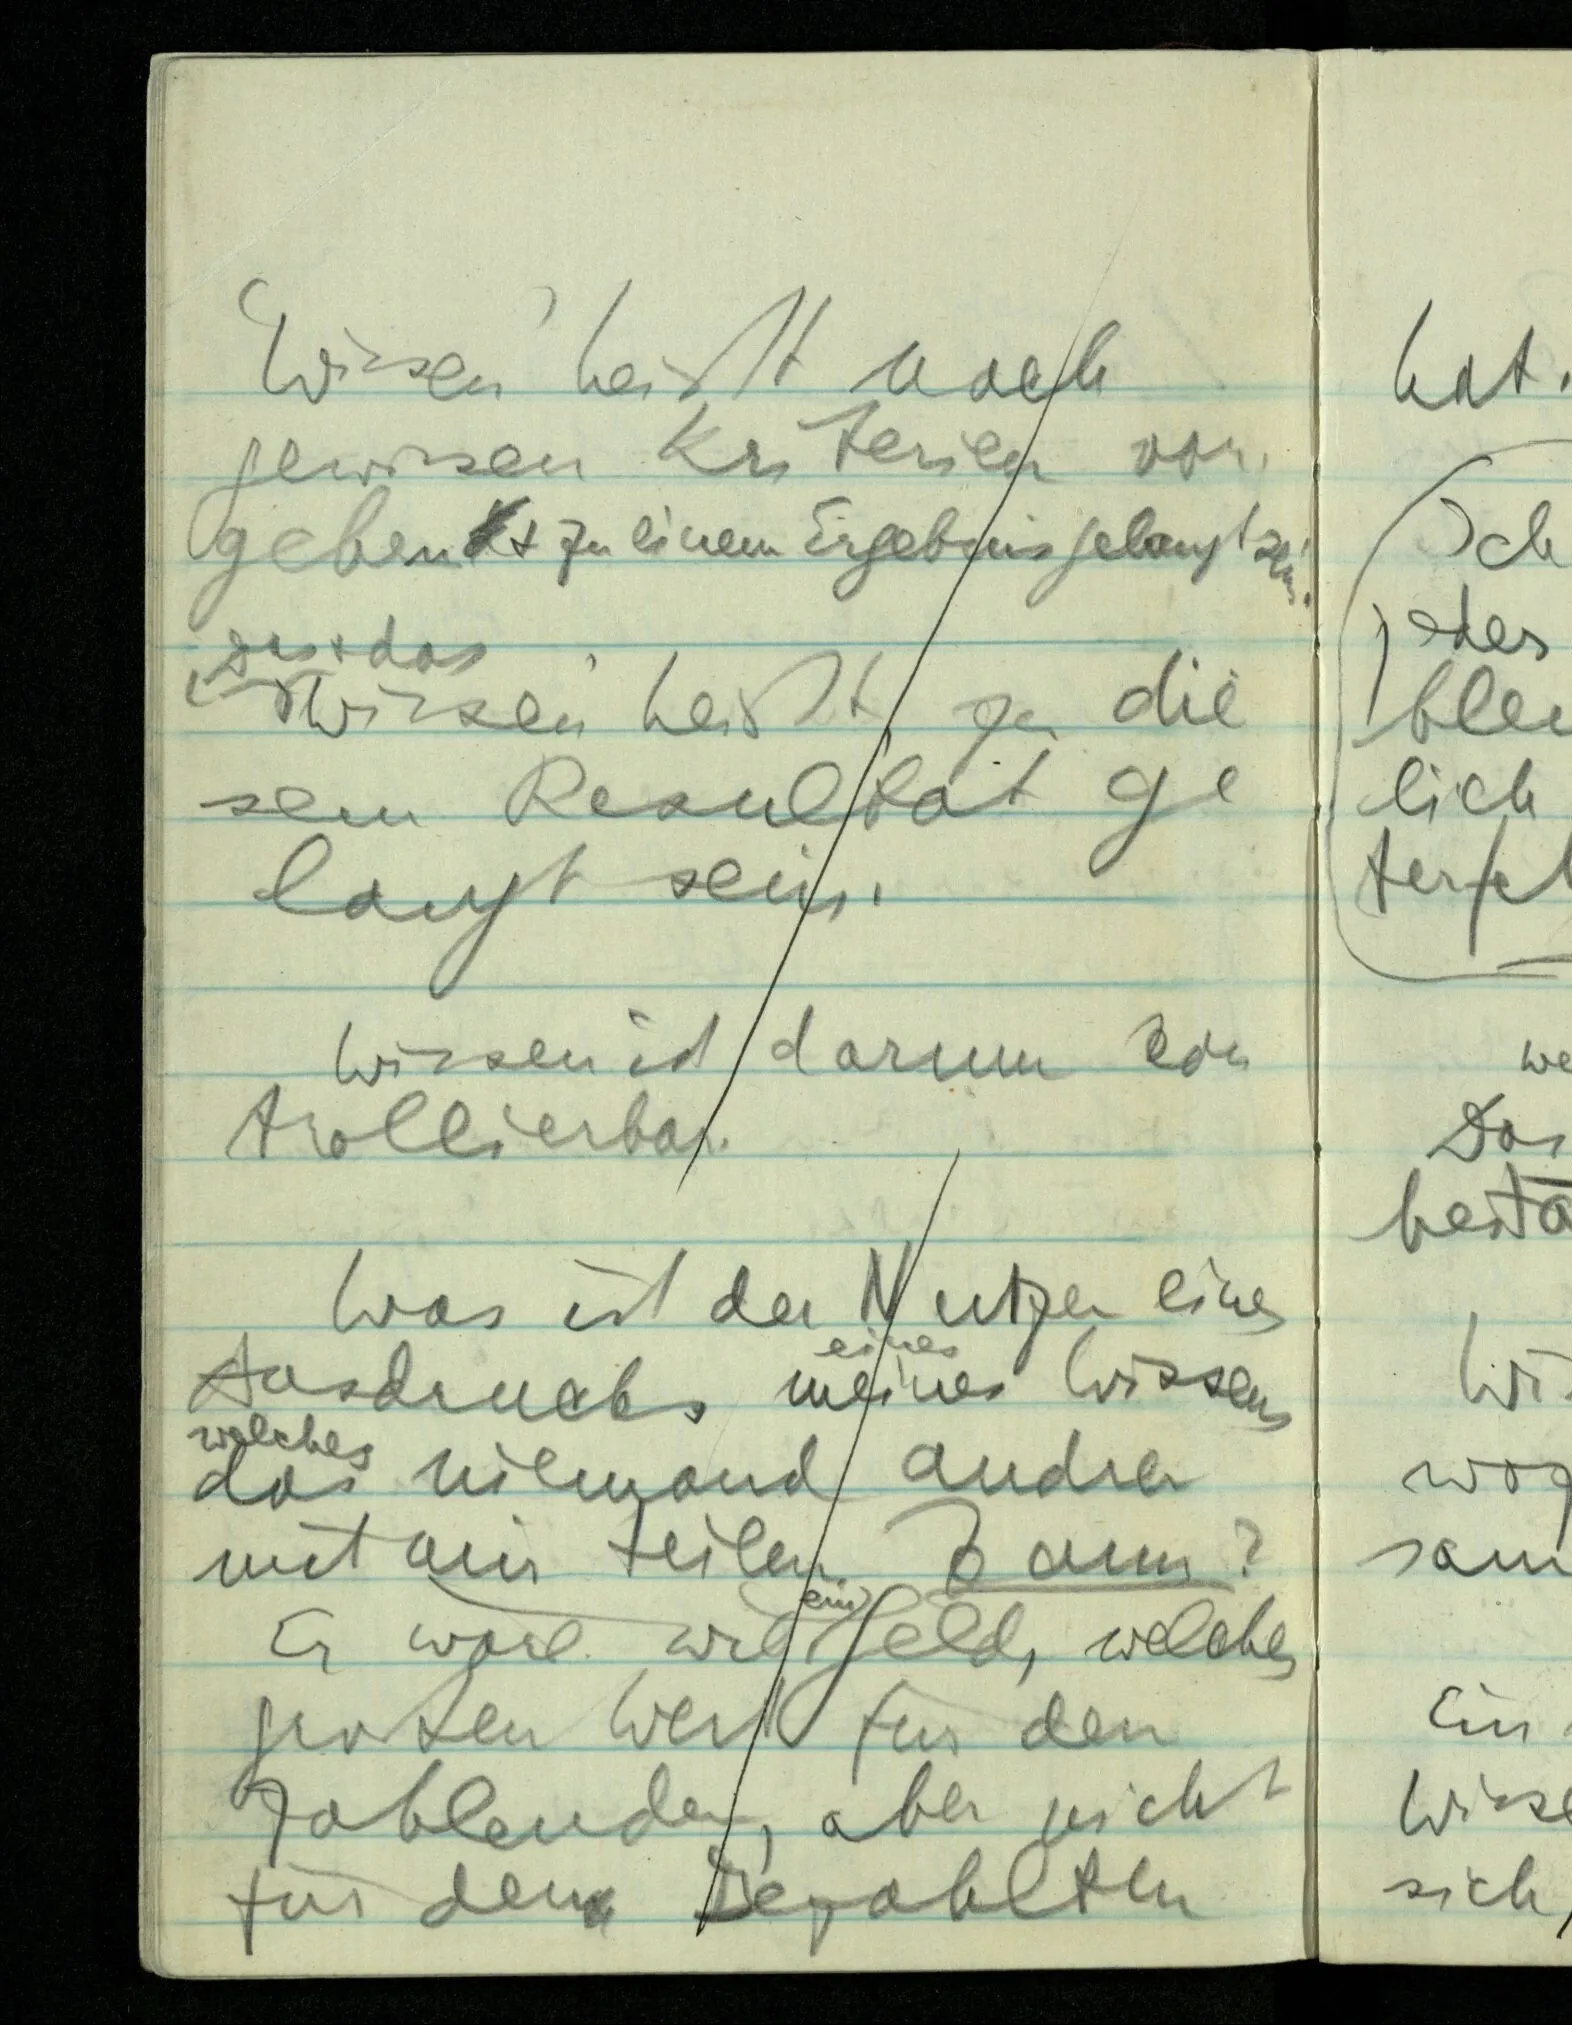 Wissen heißt nach
gewissen Kriterien vor
gehen + zu einem Ergebnis gelangt sein.
das
Wissen heißt zu die
sem Resultat ge
langt sein.
Wissen ist darum kon
trollierbar.
Was ist der Nutzen eines
eines
Ausdrucks meines Wissens
welches
das niemand andrer
mit mir teilen kann?
ein
Er wäre wie Geld, welches
großen Wert für den
Zahlenden, aber nicht
für den Bezahlten
hat.
Ich
jeder
blei
lich
we
Das
bestä
Wis
sam
Ein
Wisse
sich,